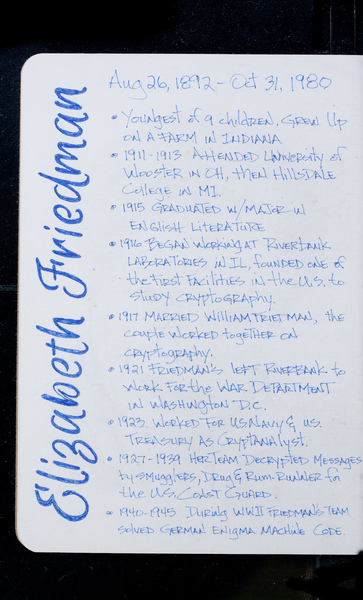 Elizabeth Friedman
Aug 26, 1892 - Oct 31, 1980
• Youngest of 9 children, Grew Up
on a Farm in Indiana
• 1911-1913 Attended University of
Wooster in OH, then Hillsdale
College in MI.
• 1915 Graduated w/ Major in
English Literature
• 1916 Began working at Riverbank
Laboratories in IL, founded one of
the first Facilities in the U.S. to
study cryptography.
• 1917 Married William Friedman, the
couple worked together on
cryptography.
• 1921 Friedman's left Riverbank to
work for the War Department
in Washington D.C.
• 1923 Worked for US Navy & US.
Treasury as Cryptanalyst.
• 1927-1939 Her Team Decrypted Messages
by smugglers, Drug & Rum-Runner for
the U.S. Coast Guard.
• 1940-1945 During WWII Friedman's Team
solved German Enigma Machine Code.